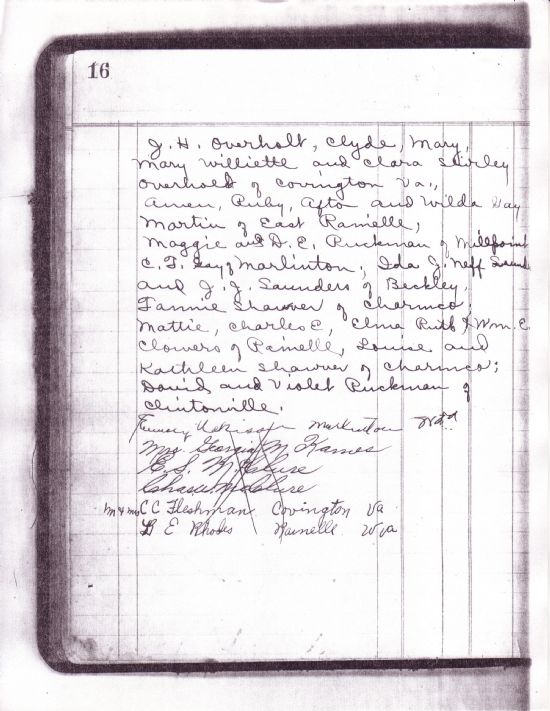 16
J. H. Overholt, Clyde, Mary,
Mary Williette and Clara Shirley
Overholt of Covington Va.,
Amen, Ruby, Afton and Wilda Day
Martin of East Rainelle,
Maggie and D. E. Ruckman of Millpoint
C. F. Gay of Marlinton; Ida J. Neff Saund
and J. J. Saunders of Beckley,
Fannie Shawver of Charmco;
Mattie, Charles E, Elma Ruth & Wm. E.
Clowers of Rainelle, Louise and
Kathleen Shawver of Charmco;
David and Violet Ruckman of
Clintonville.
Marlinton
Mrs. Georgia M Karnes
E. S. McClure
McClure
Mr & Mrs C C Fleshman Covington Va
E Rhodes Rainelle W Va